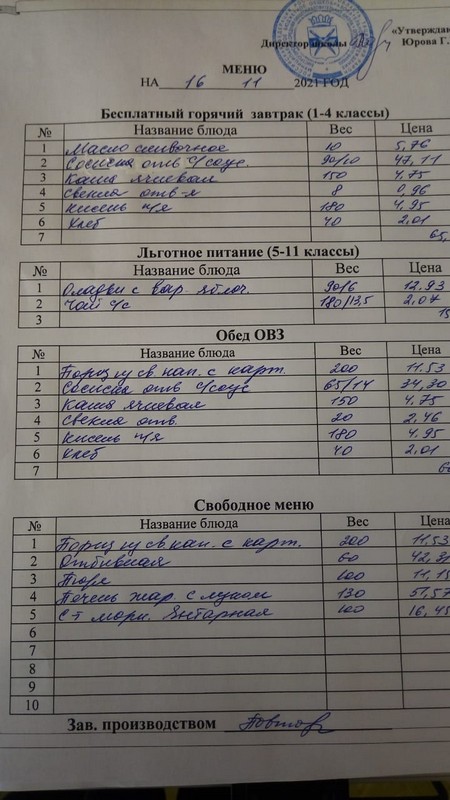 «Утверждаю
Директор школы Юрова Г.
МЕНЮ
НА 16 11 2021 ГОД
Бесплатный горячий завтрак (1-4 классы)
№ Название блюда Вес Цена
1 Масло сливочное 10 5,76
2 Сосиска отв с/соус. 90/10 47,11
3 Каша ячневая 150 4.75
4 Свекла отв-я 8 0,96
5 кисель п/я 180 4.95
6 Хлеб 40 2.01
7 65,
Льготное питание (5-11 классы)
№ Название блюда Вес Цена
1 Оладьи с вар. яблоч. 90/6 12.93
2 Чай с/с 180/13,5 2.07
3 15
Обед ОВЗ
№ Название блюда Вес Цена
1 Борщ из св кап. с карт. 200 11.53
2 Сосиска отв с/соус 65/14 34,30
3 Каша ячневая 150 4.75
4 Свекла отв. 20 2,46
5 кисель п/я 180 4.95
6 Хлеб 40 2.01
7
Свободное меню
№ Название блюда Вес Цена
1 Борщ из св кап. с карт. 200 11.53
2 Отбивная 60 42,31
3 Пюре 100 11,15
4 Печень жар. с луком 130 51,57
5 С-т морк. Янтарная 100 16,45
6
7
8
9
10
Зав. производством